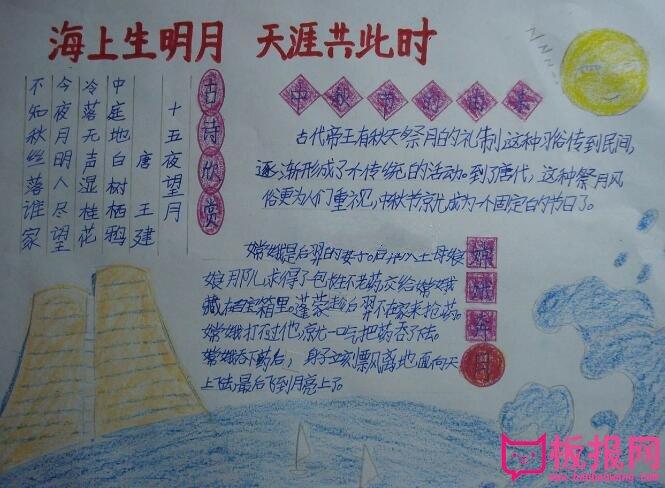 海上生明月 天涯共此时
古诗欣赏
十五夜望月
唐 王建
中庭地白树栖鸦
冷落无声湿桂花
今夜月明人尽望
不知秋丝落谁家
中秋节的由来
古代帝王有秋天祭月的礼制,这种习俗传到民间,
逐渐形成了个传统的活动。到了唐代,这种祭月风
俗更为人们重视,中秋节就成为一个固定的节日了。
嫦娥奔月
嫦娥是后羿的妻子。后羿从王母娘
娘月阿儿求得了包性不老药交给嫦娥
藏在百宝箱里。蓬蒙趁后羿不在家来抢药。
嫦娥打不过他,就一口气把药吞了下去。
嫦娥吞下药后,身子立刻飘风离地面向天
上飞去,最后飞到月亮上了。
NNNN
板报网